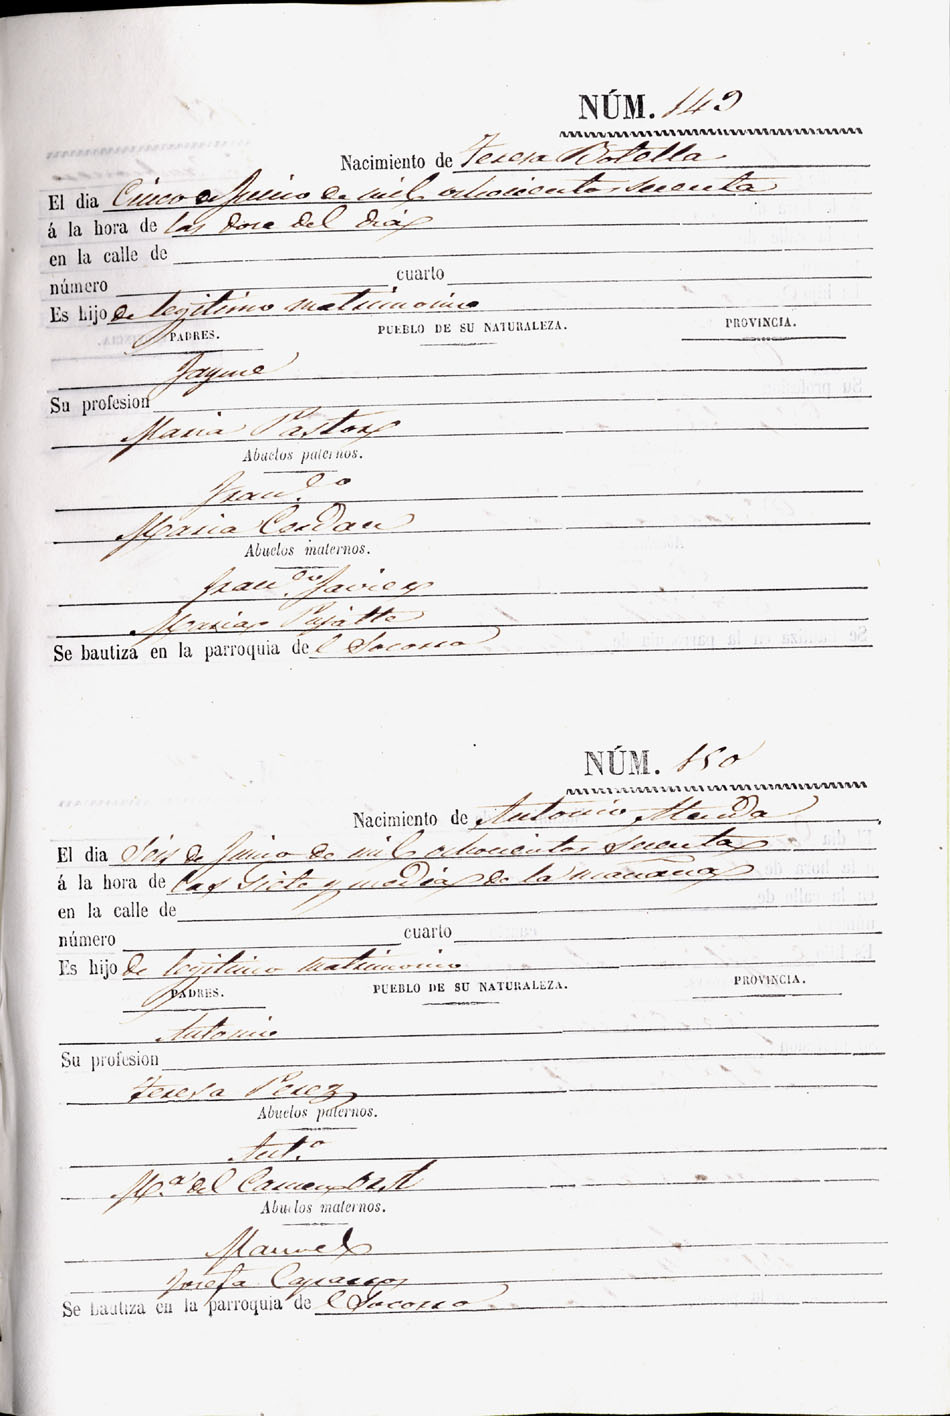 NÚM. 149
Nacimiento de Teresa Botella
El dia Cinco de Junio de mil ochocientos secenta
á la hora de las dose del dia
en la calle de
número cuarto
Es hijo de legitimo matrimonio
PADRES. PUEBLO DE SU NATURALEZA. PROVINCIA.
Jayme
Su profesion
Maria Pastor
Abuelos paternos.
Fran.co
Maria Cerdan
Abuelos maternos.
Fran.co Javier
Maria
Se bautiza en la parroquia de l Socorro
NÚM. 150
Nacimiento de Antonio
El dia Seis de Junio de mil ochocientos secenta
á la hora de las siete y media de la mañana
en la calle de
número cuarto
Es hijo de legitimo matrimonio
PADRES. PUEBLO DE SU NATURALEZA. PROVINCIA.
Antonio
Su profesion
Teresa Perez
Abuelos paternos.
Ant.o
M.a del Carmen
Abuelos maternos.
Manuel
Josefa
Se bautiza en la parroquia de l Socorro